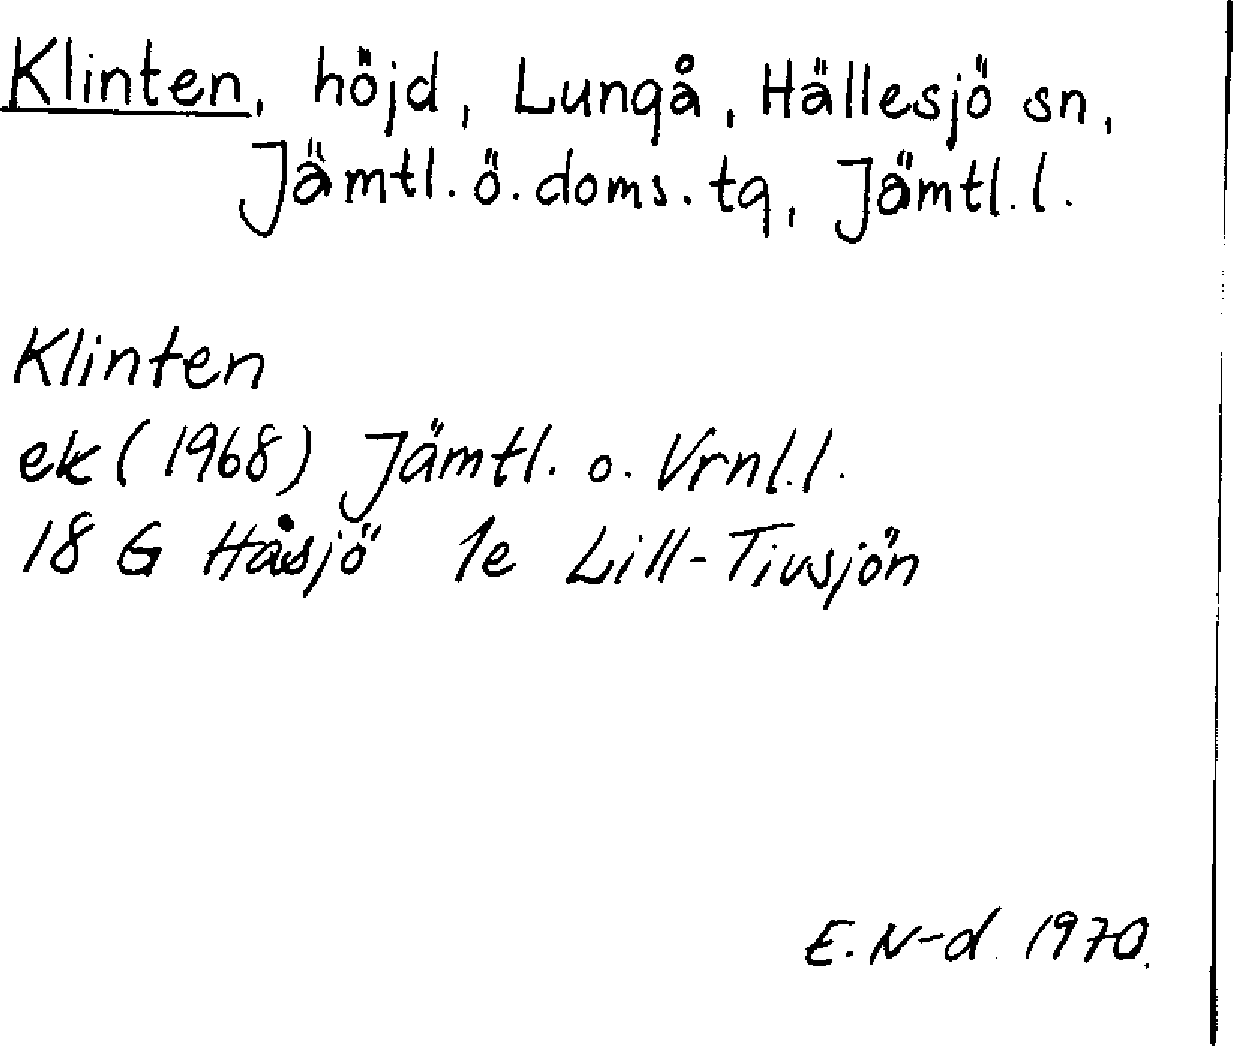 Klinten, höjd, Lungå, Hällesjö sn,
Jämtl. ö. doms. tg, Jämtl. l.
Klinten
ek (1968) Jämtl. o. Vrnl. l.
18 G Håsjö 1e Lill-Tivsjön
E. N-d 1970.